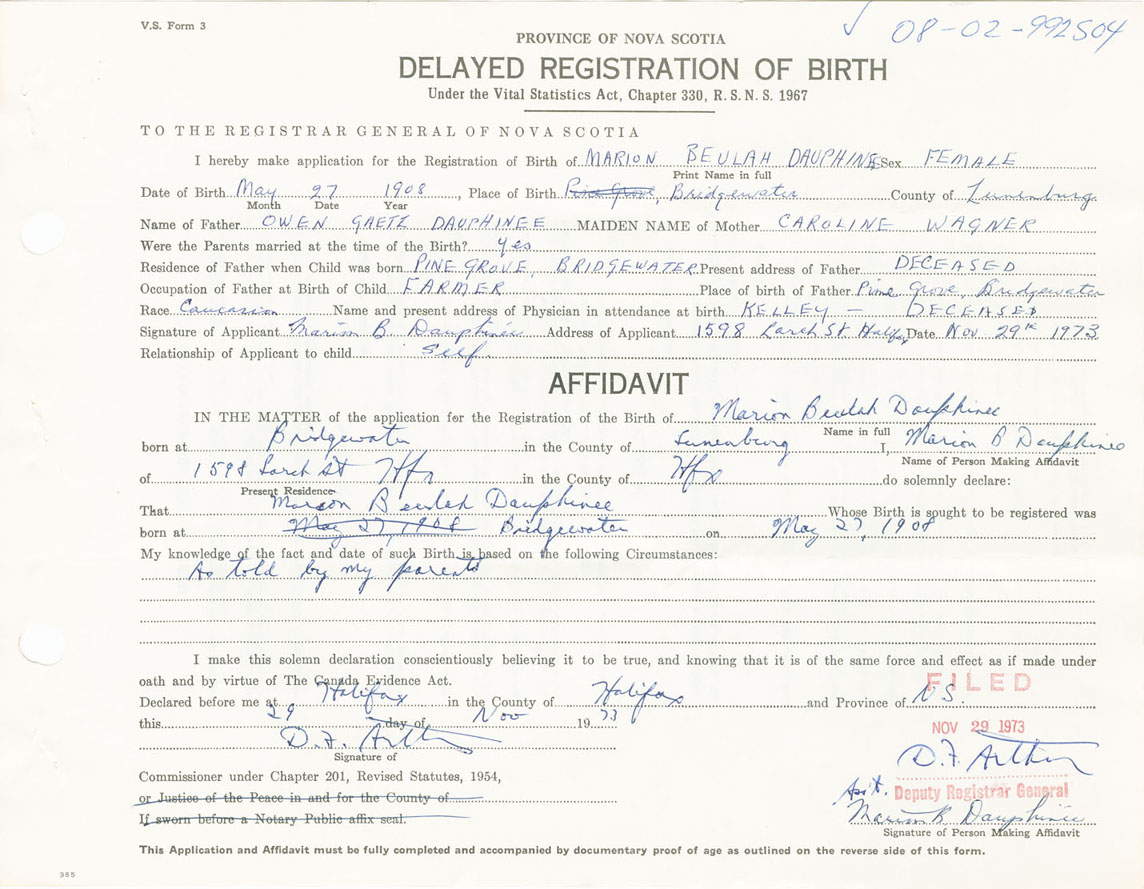 V.S. Form 3
08-02-992504
PROVINCE OF NOVA SCOTIA
DELAYED REGISTRATION OF BIRTH
Under the Vital Statistics Act, Chapter 330, R. S. N. S. 1967
TO THE REGISTRAR GENERAL OF NOVA SCOTIA
I hereby make application for the Registration of Birth of MARION BEULAH DAUPHINEE Sex FEMALE
Print Name in full
Date of Birth May 27 1908, Place of Birth Pine Grove, Bridgewater County of Lunenburg
Month Date Year
Name of Father OWEN GAETZ DAUPHINEE MAIDEN NAME of Mother CAROLINE WAGNER
Were the Parents married at the time of the Birth? yes
Residence of Father when Child was born PINE GROVE, BRIDGEWATER Present address of Father DECEASED
Occupation of Father at Birth of Child FARMER Place of birth of Father Pine Grove, Bridgewater
Race Caucasian Name and present address of Physician in attendance at birth KELLEY — DECEASED
Signature of Applicant Marion B Dauphinee Address of Applicant 1598 Larch St Halifx Date Nov. 29th 1973
Relationship of Applicant to child Self
AFFIDAVIT
IN THE MATTER of the application for the Registration of the Birth of Marion Beulah Dauphinee
Name in full
born at Bridgewater in the County of Lunenburg I, Marion B Dauphinee
Name of Person Making Affidavit
of 1598 Larch St Hfx in the County of Hfx do solemnly declare:
Present Residence
That Marion Beulah Dauphinee Whose Birth is sought to be registered was
born at May 27, 1908 Bridgewater on May 27, 1908
My knowledge of the fact and date of such Birth is based on the following Circumstances:
As told by my parents
I make this solemn declaration conscientiously believing it to be true, and knowing that it is of the same force and effect as if made under
oath and by virtue of The Canada Evidence Act.
FILED
Declared before me at Halifax in the County of Halifax and Province of N S.
this 29 day of Nov 19 73
NOV 29 1973
D. F. Arthur
Signature of
D. F. Arthur
Commissioner under Chapter 201, Revised Statutes, 1954,
Asst. Deputy Registrar General
or Justice of the Peace in and for the County of
Marion B. Dauphinee
If sworn before a Notary Public affix seal.
Signature of Person Making Affidavit
This Application and Affidavit must be fully completed and accompanied by documentary proof of age as outlined on the reverse side of this form.
365